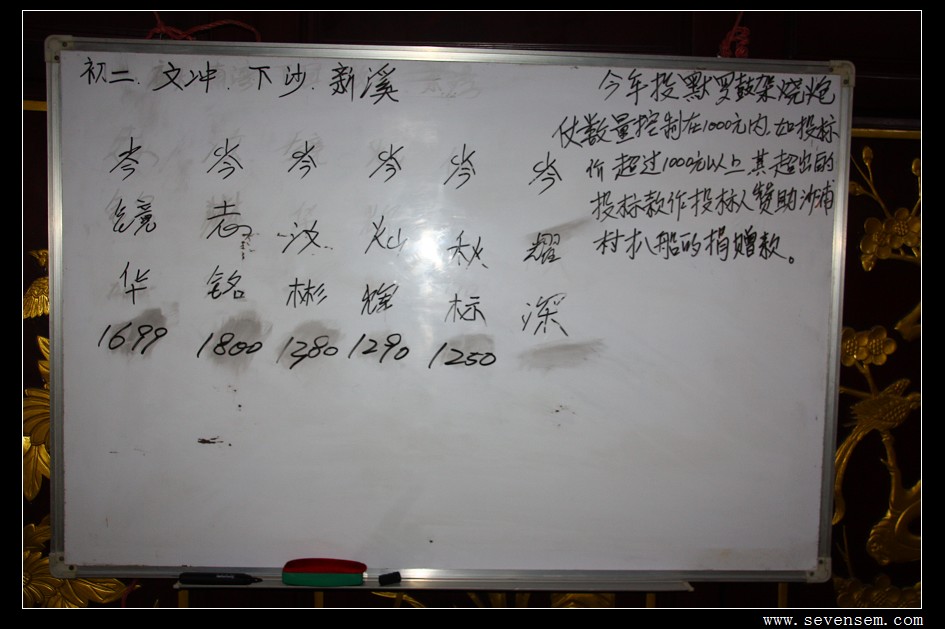 初二. 文冲. 下沙. 新溪
今年投默罗鼓架烧炮
仗数量控制在1000元内. 如投标
价超过1000元以上.其超出的
投标款作投标人赞助沙浦
村扒船的捐赠款。
岑镜华
1699
岑志铭
1800
岑汝彬
1380
岑灿辉
1290
岑秋标
1250
岑耀深
www.sevensem.com